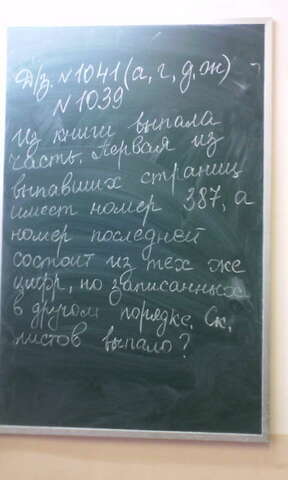 Д/з. №1041 (а, г, д, ж)
№1039
Из книги выпала
часть. Первая из
выпавших страниц
имеет номер 387, а
номер последней
состоит из тех же
цифр, но записанных
в другом порядке. Ск.
листов выпало?